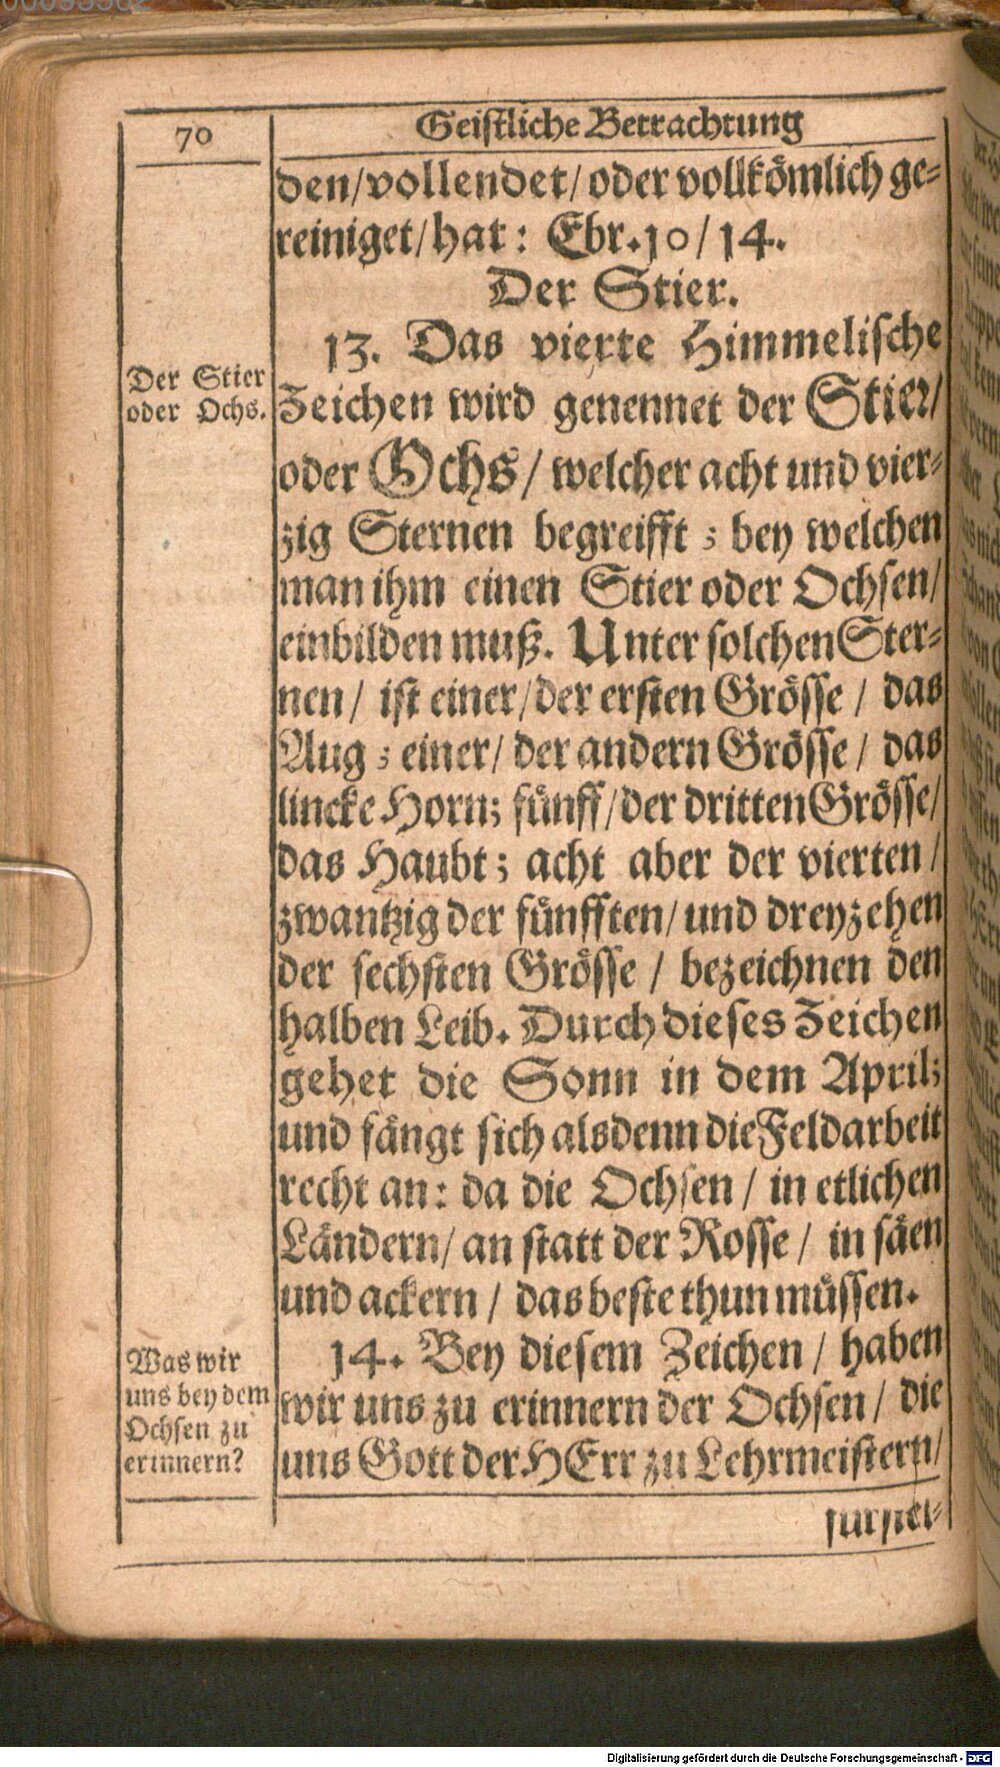 70
Geistliche Betrachtung
den/vollendet/oder vollkömlich ge-
reiniget/hat: Ebr.10/14.
Der Stier.
13. Das vierte Himmelische
Der Stier
oder Ochs.
Zeichen wird genennet der Stier/
oder Ochs/ welcher acht und vier-
zig Sternen begreifft; bey welchen
man ihm einen Stier oder Ochsen/
einbilden muß. Unter solchen Ster-
nen/ ist einer/der ersten Grösse/ das
Aug; einer/ der andern Grösse/ das
lincke Horn; fünff/der dritten Grösse/
das Haubt; acht aber der vierten/
zwantzig der fünfften/ und dreyzehen
der sechsten Grösse/ bezeichnen den
halben Leib. Durch dieses Zeichen
gehet die Sonn in dem April;
und fängt sich alsdenn die Feldarbeit
recht an: da die Ochsen/ in etlichen
Ländern/ an statt der Rosse/ in säen
und ackern/ das beste thun müssen.
14. Bey diesem Zeichen/ haben
Was wir
uns bey dem
Ochsen zu
erinnern?
wir uns zu erinnern der Ochsen/ die
uns Gott der HErr zu Lehrmeistern/
fürstel-
Digitalisierung gefördert durch die Deutsche Forschungsgemeinschaft - DFG